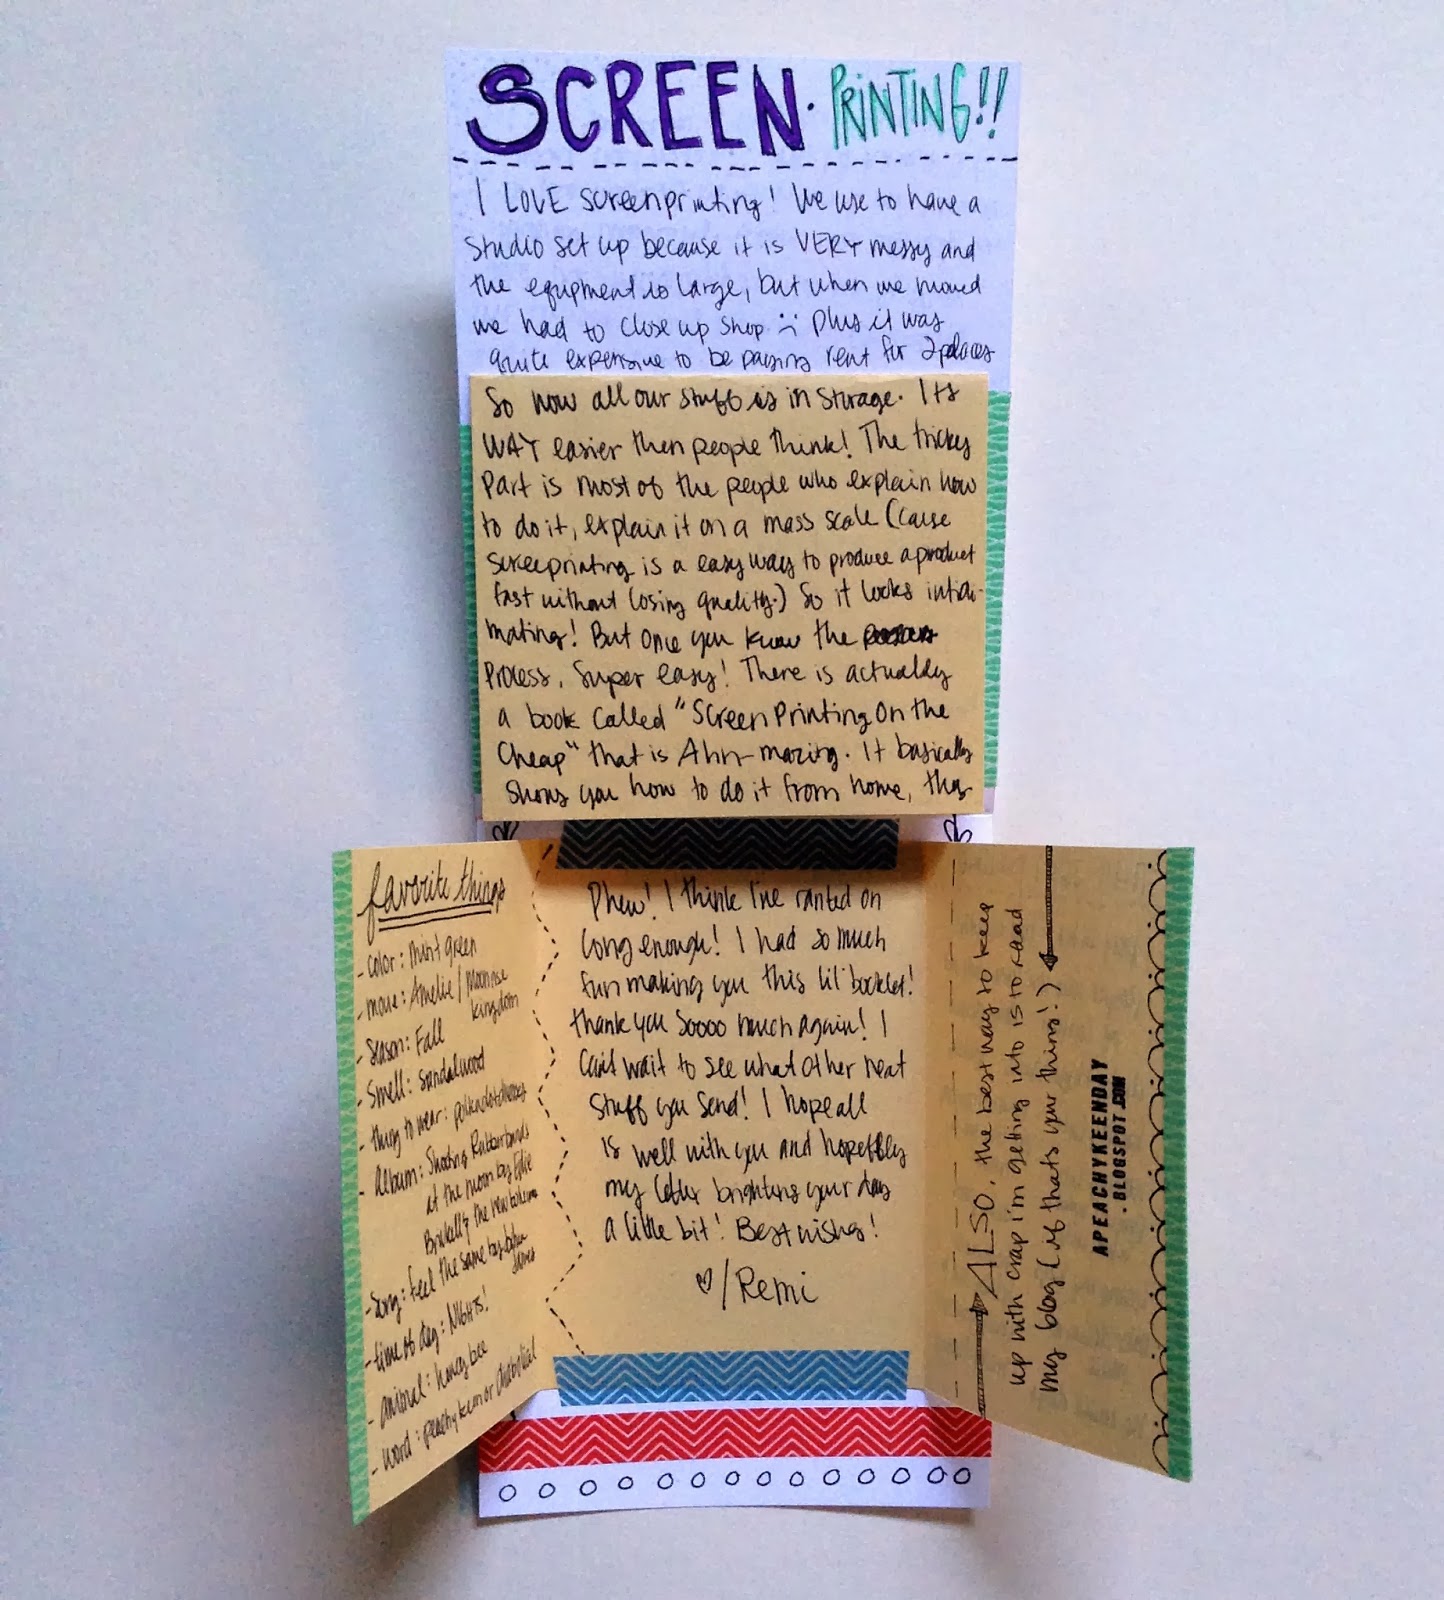 SCREEN. PRINTING!!
I LOVE screenprinting! We use to have a
studio set up because it is VERY messy and
the equipment is large, but when we moved
we had to close up shop :( plus it was
quite expensive to be paying rent for 2 places
So now all our stuff is in storage. Its
WAY easier then people think! The tricky
part is most of the people who explain how
to do it, explain it on a mass scale (cause
screeprinting is a easy way to produce a product
fast without losing quality.) So it looks intidi-
mating! But once you know the
process, super easy! There is actually
a book called "Screen Printing On the
Cheap" that is Ahh-mazing. It basically
shows you how to do it from home, they
favorite things
- color: mint green
- movie: Amelie / Moonrise
kingdom
- Season: Fall
- Smell: Sandalwood
- thing to wear: polkadot dresses
- Album: Shooting Rubberbands
at the moon by Edie
Brickell & the new bohemians
- Song: feel the same by
James
- time of day: NIGHTS!
- animal: honey bee
- word: peachy keen or diabolical
Phew! I think I've ranted on
long enough! I had so much
fun making you this lil' booklet!
thank you soooo much again! I
can't wait to see what other neat
stuff you send! I hope all
is well with you and hopeflly
my letter brightens your day
a little bit! Best wishes!
♡/Remi
ALSO, the best way to keep
up with crap i'm getting into is to read
my blog (if that's your thing!)
APEACHYKEENDAY
.BLOGSPOT.COM